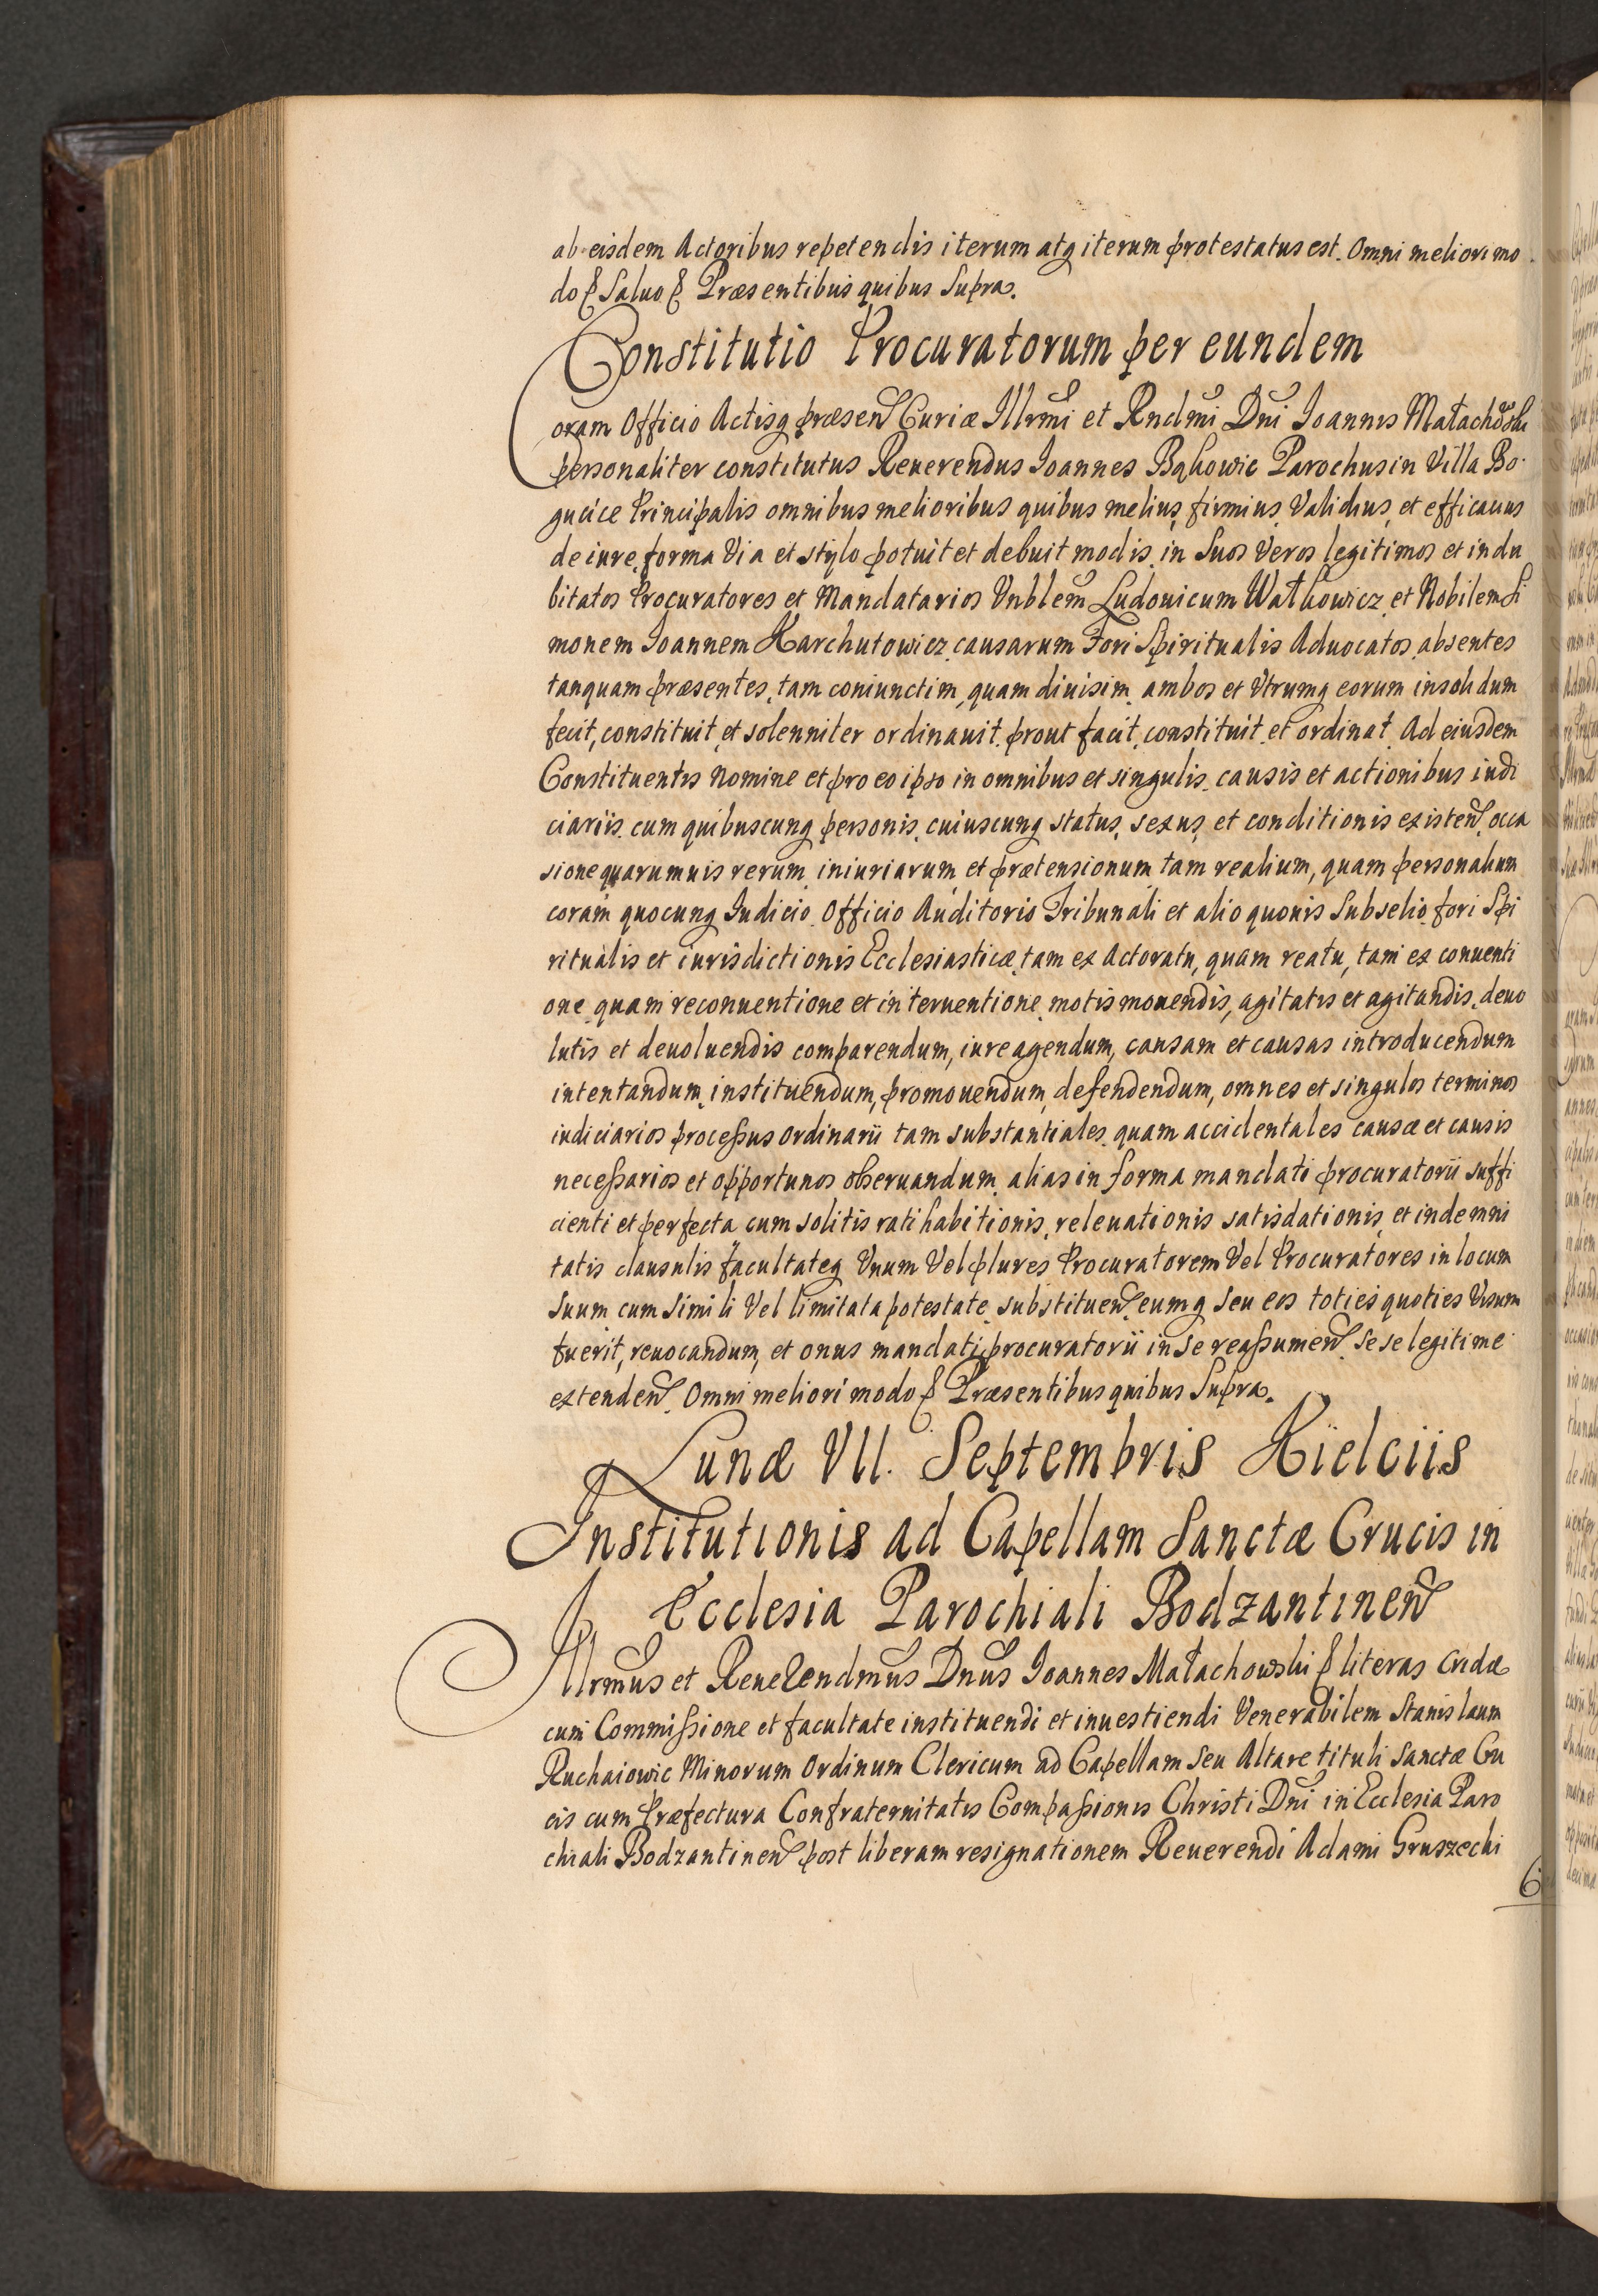 ab eisdem Actoribus repetendis iterum atq iterum protestatus est. Omni meliori mo
do & Saluo & Præsentibus quibus Supra.
Constitutio Procuratorum per eundem
Coram Officio Actisq præsen Curiæ Illrmi et Rndmi Dni Ioannis Małachoski
personaliter constitutus Reuerendus Ioannes Bąkowic Parochus in Villa Bo
gucice Principalis omnibus melioribus quibus melius, firmius, Validius, et efficacius
de iure, forma Via et stylo potuit et debuit modis, in Suos Veros legitimos et indu
bitatos Procuratores et Mandatarios Vnblem Ludouicum Wałkowicz et Nobilem Si
monem Ioannem Karchutowicz causarum Fori Spiritualis Aduocatos absentes
tanquam præsentes, tam coniunctim, quam diuisim, ambos et Vtrumq eorum insolidum
fecit, constituit, et solenniter ordinauit, prout facit, constituit, et ordinat, Ad eiusdem
Constituentis Nomine et pro eo ipso in omnibus et singulis causis et actionibus iudi
ciariis cum quibuscunq personis, cuiuscunq status, sexus, et conditionis existen, occa
sione quarumuis rerum, iniuriarum, et prætensionum tam realium, quam personalium
coram quocunq Iudicio, Officio Auditorio Tribunali et alio quouis Subselio, fori Spi
ritualis et iurisdictionis Ecclesiasticæ, tam ex Actoratu, quam reatu, tam ex conuenti
one, quam reconuentione et interuentione, motis mouendis, agitatis et agitandis, deuo
lutis et deuoluendis comparendum, iure agendum, causam et causas introducendum
intentandum, instituendum, promouendum, defendendum, omnes et singulos terminos
iudiciarios processus ordinarii tam substantiales, quam accidentales causæ et causis
necessarios et opportunos obseruandum, alias in forma mandati procuratorii suffi
cienti et perfecta cum solitis ratihabitionis, releuationis satisdationis, et indemni
tatis clausulis facultateq Vnum Vel plures Procuratorem Vel Procuratores in locum
Suum cum Simili Vel limitata potestate, substituen, eumq Seu eos toties quoties Visum
fuerit, reuocandum, et onus mandati procuratorii in Se reassumen, Se se legitime
extenden. Omni meliori modo & Præsentibus quibus Supra.
Lunæ VII. Septembris Kielciis
Institutionis ad Capellam Sanctæ Crucis in
Ecclesia Parochiali Bodzantinen
Illrmus et Reuerendmus Dnus Ioannes Małachowski & literas cridæ
cum Commissione et facultate instituendi et inuestiendi Venerabilem Stanislaum
Ruchaiowic Minorum Ordinum Clericum ad Capellam Seu Altare tituli Sanctæ Cru
cis cum Præfectura Confraternitatis Compassionis Christi Dni in Ecclesia Paro
chiali Bodzantinen post liberam resignationem Reuerendi Adami Gruszecki